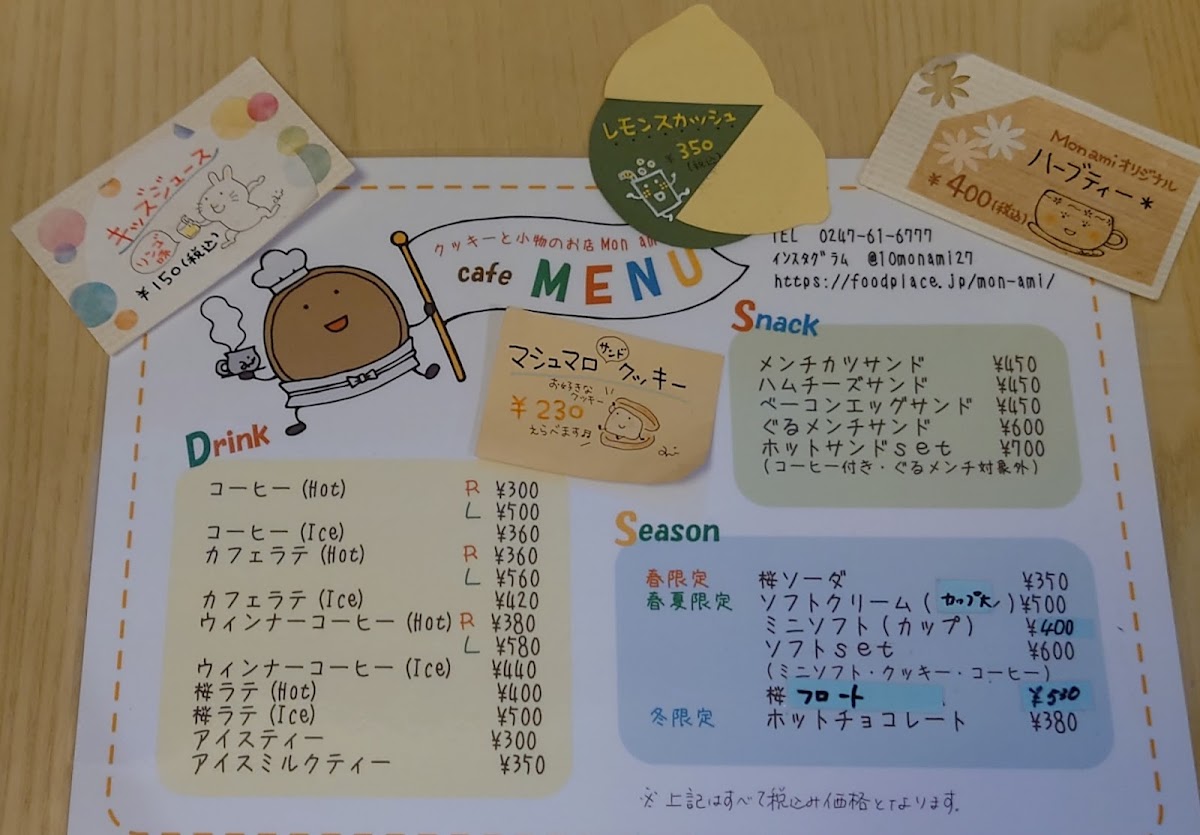 キッズジュース
リンゴ味
¥150(税込)
レモンスカッシュ
¥350
(税込)
Mon ami オリジナル
ハーブティー*
¥400(税込)
クッキーと小物のお店 Mon am
cafe MENU
TEL 0247-61-6777
インスタグラム @10monami27
https://foodplace.jp/mon-ami/
マシュマロサンドクッキー
お好きな
クッキー
¥230
えらべます♬
Drink
コーヒー (Hot) R ¥300
L ¥500
コーヒー (Ice) ¥360
カフェラテ (Hot) R ¥360
L ¥560
カフェラテ (Ice) ¥420
ウィンナーコーヒー (Hot) R ¥380
L ¥580
ウィンナーコーヒー (Ice) ¥440
桜ラテ (Hot) ¥400
桜ラテ (Ice) ¥500
アイスティー ¥300
アイスミルクティー ¥350
Snack
メンチカツサンド ¥450
ハムチーズサンド ¥450
ベーコンエッグサンド ¥450
ぐるメンチサンド ¥600
ホットサンドset ¥700
(コーヒー付き・ぐるメンチ対象外)
Season
春限定 桜ソーダ ¥350
春夏限定 ソフトクリーム (カップ大) ¥500
ミニソフト (カップ) ¥400
ソフトset ¥600
(ミニソフト・クッキー・コーヒー)
桜フロート ¥530
冬限定 ホットチョコレート ¥380
※上記はすべて税込み価格となります。